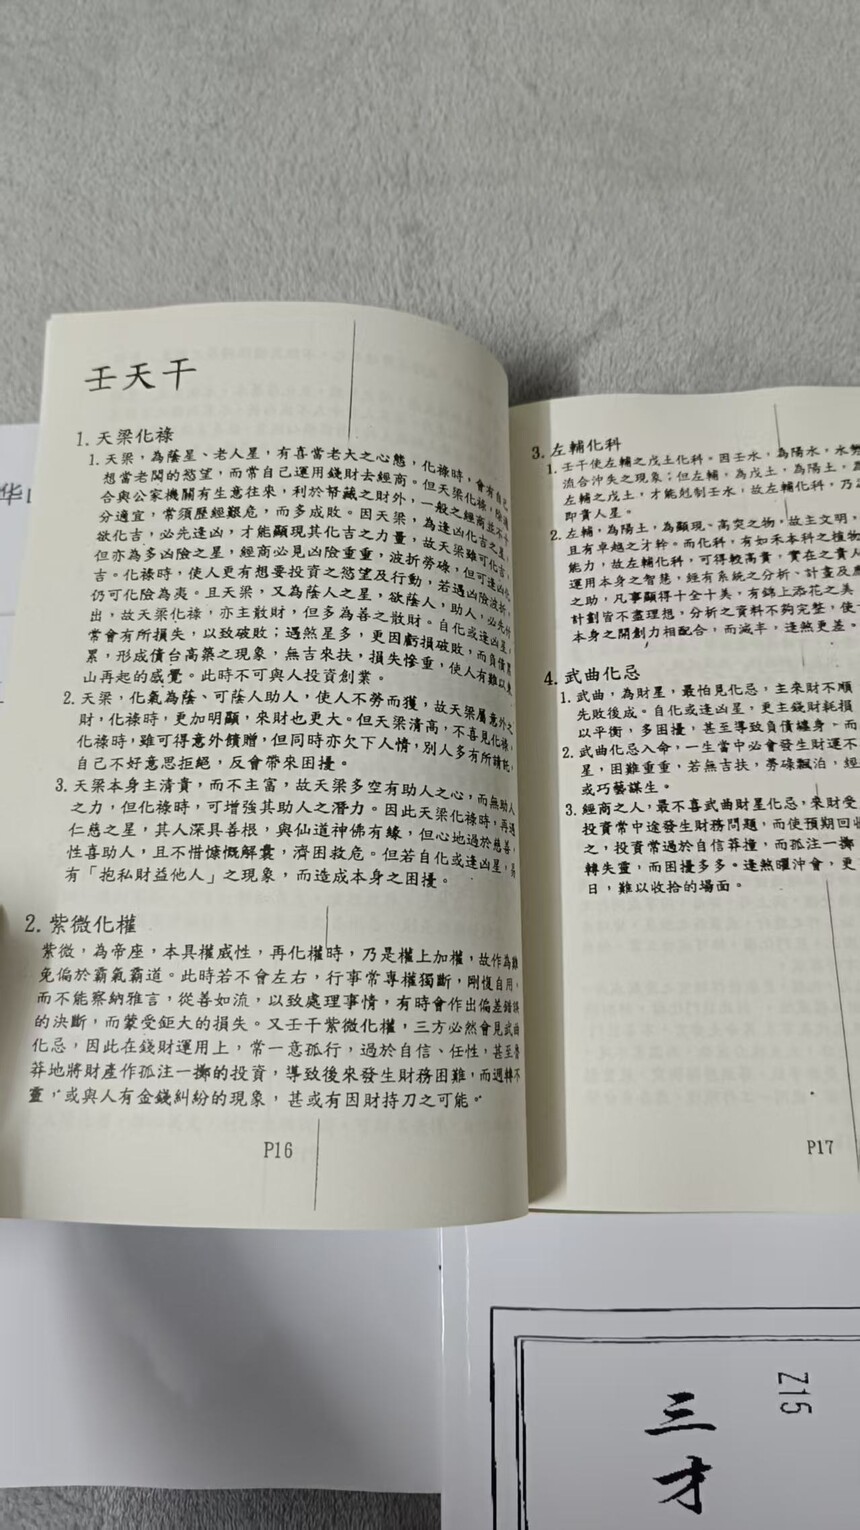 壬天干
1. 天梁化祿
1. 天梁，為蔭星、老人星，有喜當老大之心態，化祿時，會有自己
想當老闆的慾望，而常自己運用錢財去經商。但天梁化祿，除適
合與公家機關有生意往來，利於帑藏之財外，一般之經商並不十
分適宜，常須歷經艱危，而多成敗。因天梁，為逢凶化吉之星，
欲化吉，必先逢凶，才能顯現其化吉之力量，故天梁雖可化吉，
但亦為多凶險之星，經商必見凶險重重，波折勞碌，但可逢凶化
吉。化祿時，使人更有想要投資之慾望及行動，若遇凶險波折，
仍可化險為夷。且天梁，又為蔭人之星，欲蔭人，助人，必先付
出，故天梁化祿，亦主散財，但多為善之散財。自化或逢凶星，
常會有所損失，以致破敗；遇煞星多，更因虧損破敗，而負債累
累，形成債台高築之現象，無吉來扶，損失慘重，使人有難以東
山再起的感覺。此時不可與人投資創業。
2. 天梁，化氣為蔭、可蔭人助人，使人不勞而獲，故天梁屬意外之
財，化祿時，更加明顯，來財也更大。但天梁清高，不喜見化祿，
化祿時，雖可得意外饋贈，但同時亦欠下人情，別人多有所請託，
自己不好意思拒絕，反會帶來困擾。
3. 天梁本身主清貴，而不主富，故天梁多空有助人之心，而無助人
之力，但化祿時，可增強其助人之潛力。因此天梁化祿時，再遇
仁慈之星，其人深具善根，與仙道神佛有緣，但心地過於慈善，
性喜助人，且不惜慷慨解囊，濟困救危。但若自化或逢凶星，易
有「抱私財益他人」之現象，而造成本身之困擾。
2. 紫微化權
紫微，為帝座，本具權威性，再化權時，乃是權上加權，故作為難
免偏於霸氣霸道。此時若不會左右，行事常專權獨斷，剛愎自用，
而不能察納雅言，從善如流，以致處理事情，有時會作出偏差錯誤
的決斷，而蒙受鉅大的損失。又壬干紫微化權，三方必然會見武曲
化忌，因此在錢財運用上，常一意孤行，過於自信、任性，甚至魯
莽地將財產作孤注一擲的投資，導致後來發生財務困難，而週轉不
靈，或與人有金錢糾紛的現象，甚或有因財持刀之可能。
P16
3. 左輔化科
1. 壬干使左輔之戊土化科。因壬水，為陽水，水勢
流合沖失之現象；但左輔，為戊土，為陽土，
左輔之戊土，才能剋制壬水，故左輔化科，乃
即貴人星。
2. 左輔，為陽土，為顯現、高突之物，故主文明，
且有卓越之才幹。而化科，有如禾本科之植物
能力，故左輔化科，可得較高貴，實在之貴人
運用本身之智慧，經有系統之分析、計畫及
之助，凡事顯得十全十美，有錦上添花之美
計劃皆不盡理想，分析之資料不夠完整，使
本身之開創力相配合，而減半，逢煞更差。
4. 武曲化忌
1. 武曲，為財星，最怕見化忌，主來財不順
先敗後成。自化或逢凶星，更主錢財耗損
以平衡，多困擾，甚至導致負債纏身、而
2. 武曲化忌入命，一生當中必會發生財運不
星，困難重重，若無吉扶，勞碌飄泊，經
或巧藝謀生。
3. 經商之人，最不喜武曲財星化忌，來財受
投資常中途發生財務問題，而使預期回收
之，投資常過於自信莽撞，而孤注一擲
轉失靈，而困擾多多。逢煞曜沖會，更
日，難以收拾的場面。
P17
华
Z15
三才